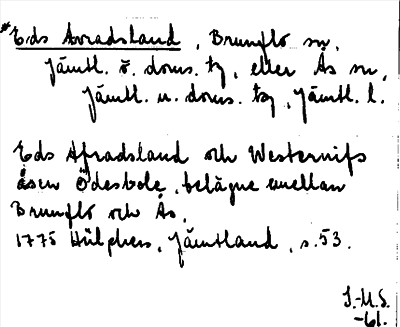 *Eds Avradsland, Brunflo sn,
Jämtl. ö. doms. tg, eller Ås sn,
Jämtl. n. doms. tg, Jämtl. l.
Eds Afradsland och Westernifs
åsen Ödesbole, belägne emellan
Brunflo och Ås.
1775 Hülphers, Jämtland, s. 53.
J.-M.S.
-61.